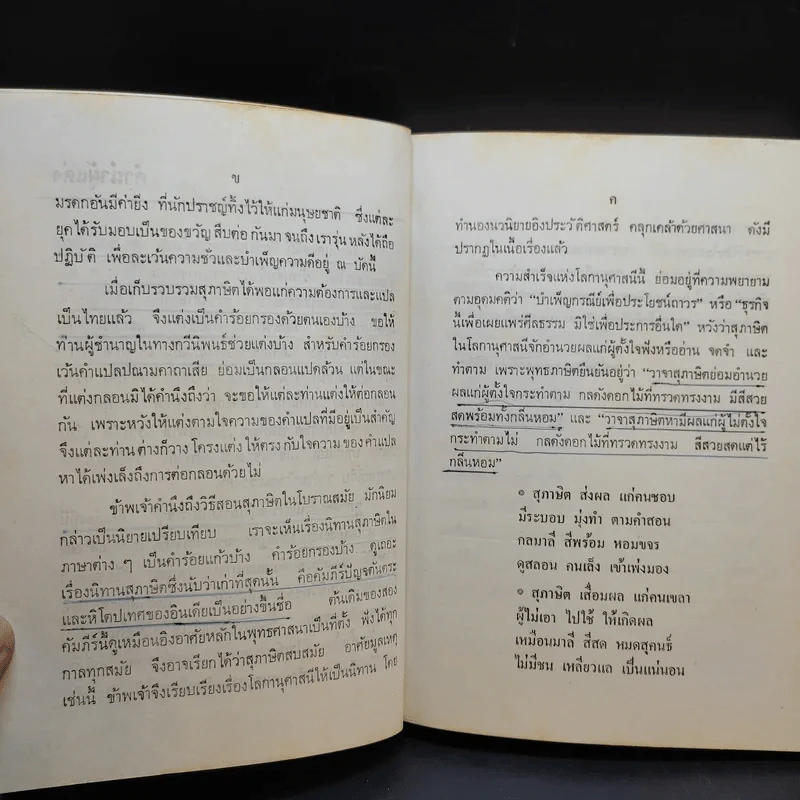 ข
มรดกอันมีค่ายิ่ง ที่นักปราชญ์ทิ้งไว้ให้แก่มนุษยชาติ ซึ่งแต่ละ
ยุคได้รับมอบเป็นของขวัญ สืบต่อ กันมา จนถึง เรารุ่น หลังได้ถือ
ปฏิบัติ เพื่อละเว้นความชั่วและบำเพ็ญความดีอยู่ ณ บัดนี้
เมื่อเก็บรวบรวมสุภาษิตได้พอแก่ความต้องการและแปล
เป็นไทยแล้ว จึงแต่งเป็นคำร้อยกรองด้วยตนเองบ้าง ขอให้
ท่านผู้ชำนาญในทางกวีนิพนธ์ช่วยแต่งบ้าง สำหรับคำร้อยกรอง
เว้นคำแปลปณามคาถาเสีย ย่อมเป็นกลอนแปดล้วน แต่ในขณะ
ที่แต่งกลอนมิได้คำนึงถึงว่า จะขอให้แต่ละท่านแต่งให้ต่อกลอน
กัน เพราะหวังให้แต่งตามใจความของคำแปลที่มีอยู่เป็นสำคัญ
จึงแต่ละท่าน ต่างก็วาง โครงแต่ง ให้ตรง กับใจความ ของ คำแปล
หาได้เพ่งเล็งถึงการต่อกลอนด้วยไม่
ข้าพเจ้าคำนึงถึงวิธีสอนสุภาษิตในโบราณสมัย มักนิยม
กล่าวเป็นนิยายเปรียบเทียบ เราจะเห็นเรื่องนิทานสุภาษิตใน
ภาษาต่าง ๆ เป็นคำร้อยแก้วบ้าง คำร้อยกรองบ้าง ดูเถอะ
เรื่องนิทานสุภาษิตซึ่งนับว่าเก่าที่สุดนั้น คือคัมภีร์ปัญจตันตระ
และหิโตปเทศของอินเดียเป็นอย่างขึ้นชื่อ ต้นเดิมของสอง
คัมภีร์นี้ดูเหมือนอิงอาศัยหลักในพุทธศาสนาเป็นที่ตั้ง ฟังได้ทุก
กาลทุกสมัย จึงอาจเรียกได้ว่าสุภาษิตสบสมัย อาศัยมูลเหตุ
เช่นนี้ ข้าพเจ้าจึงเรียบเรียงเรื่องโลกานุศาสนีให้เป็นนิทาน โดย
ค
ทำนองนวนิยายอิงประวัติศาสตร์ คลุกเคล้าด้วยศาสนา ดังมี
ปรากฏในเนื้อเรื่องแล้ว
ความสำเร็จแห่งโลกานุศาสนีนี้ ย่อมอยู่ที่ความพยายาม
ตามอุดมคติว่า “บำเพ็ญกรณีย์เพื่อประโยชน์ถาวร” หรือ “ธุรกิจ
นี้เพื่อเผยแพร่ศีลธรรม มิใช่เพื่อประการอื่นใด” หวังว่าสุภาษิต
ในโลกานุศาสนีจักอำนวยผลแก่ผู้ตั้งใจฟังหรืออ่าน จดจำ และ
ทำตาม เพราะพุทธภาษิตยืนยันอยู่ว่า “วาจาสุภาษิตย่อมอำนวย
ผลแก่ผู้ตั้งใจกระทำตาม กลดังดอกไม้ที่ทรวดทรงงาม มีสีสวย
สดพร้อมทั้งกลิ่นหอม” และ “วาจาสุภาษิตหามีผลแก่ผู้ไม่ตั้งใจ
กระทำตามไม่ กลดั่งดอกไม้ที่ทรวดทรงงาม สีสวยสดแต่ไร้
กลิ่นหอม”
๏ สุภาษิต ส่งผล แก่คนชอบ
มีระบอบ มุ่งทำ ตามคำสอน
กลมาลี สีพร้อม หอมขจร
ดูสลอน คนเล็ง เข้าเพ่งมอง
๏ สุภาษิต เสื่อมผล แก่คนเขลา
ผู้ไม่เอา ไปใช้ ให้เกิดผล
เหมือนมาลี สีสด หมดสุคนธ์
ไม่มีชน เหลียวแล เป็นแน่นอน